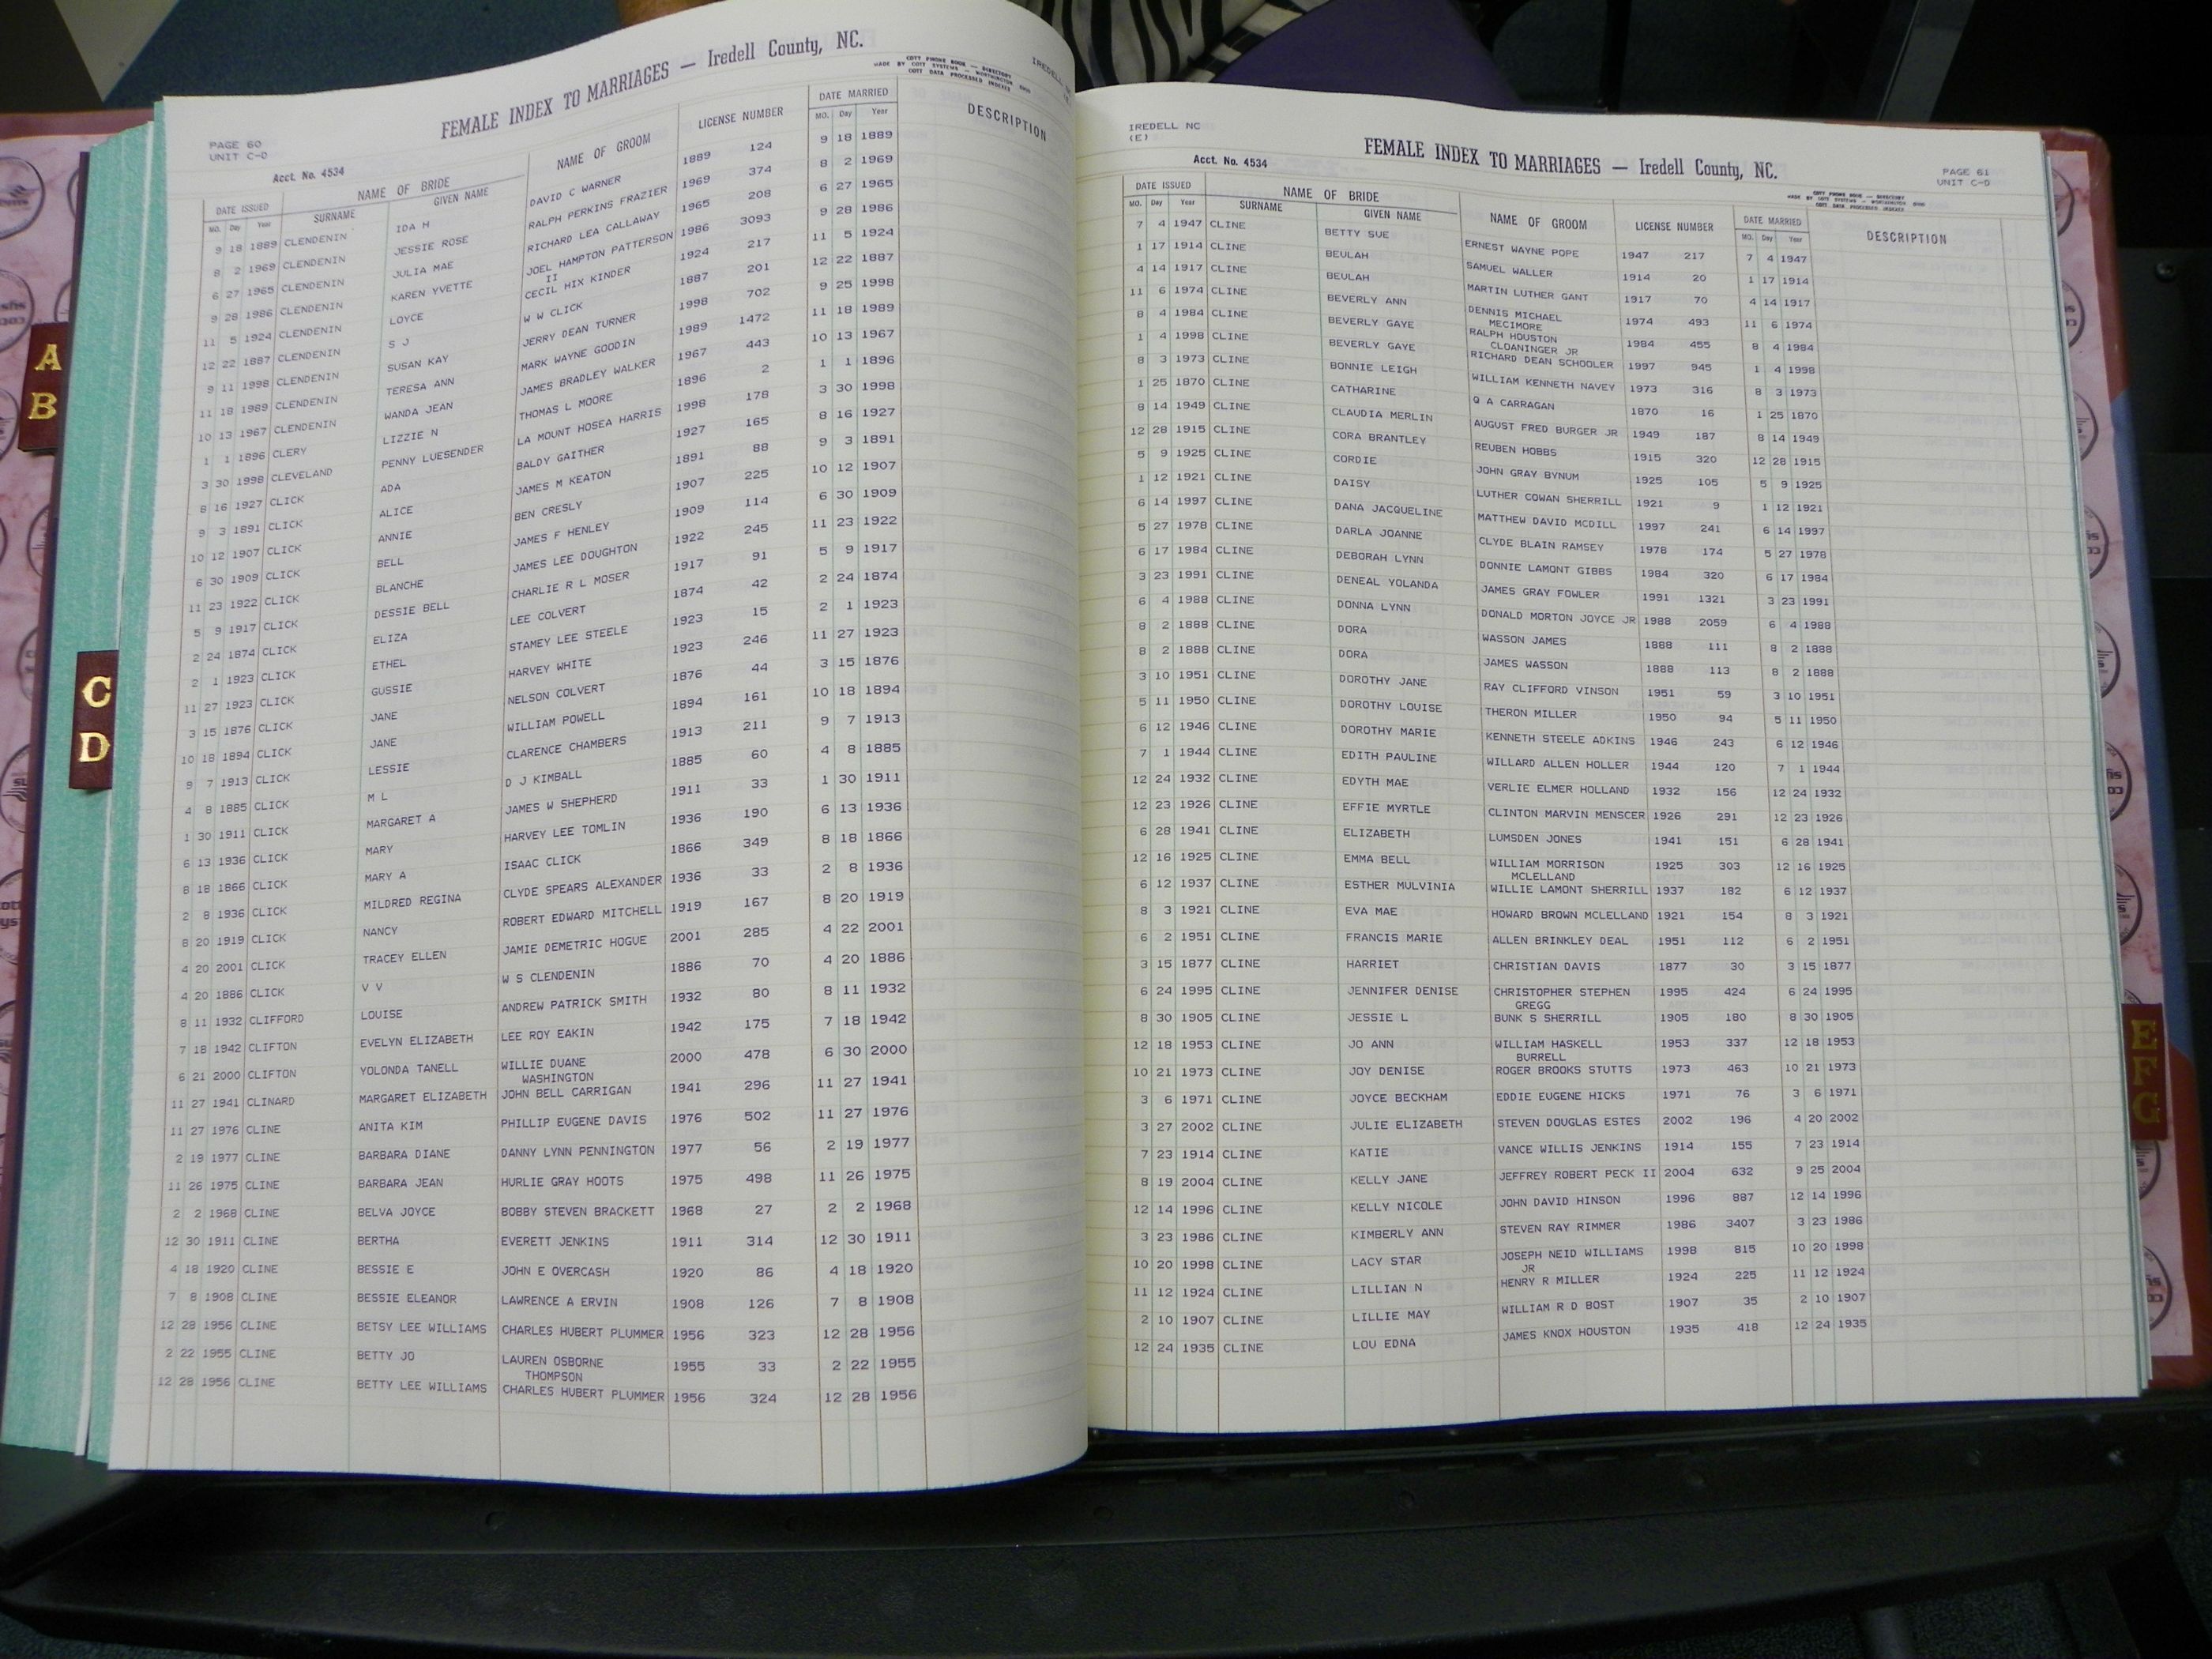 PAGE 60
UNIT C-D
FEMALE INDEX TO MARRIAGES — Iredell County, NC.
MADE BY COTT SYSTEMS — WORTHINGTON OHIO
COTT DATA PROCESSED INDEXES
IREDELL
Acct. No. 4534
DATE ISSUED NAME OF BRIDE NAME OF GROOM LICENSE NUMBER DATE MARRIED DESCRIPTION
MO. Day Year SURNAME GIVEN NAME MO. Day Year
9 18 1889 CLENDENIN IDA H DAVID C WARNER 1889 124 9 18 1889
8 2 1969 CLENDENIN JESSIE ROSE RALPH PERKINS FRAZIER 1969 374 8 2 1969
6 27 1965 CLENDENIN JULIA MAE RICHARD LEA CALLAWAY 1965 208 6 27 1965
9 28 1986 CLENDENIN KAREN YVETTE JOEL HAMPTON PATTERSON 1986 3093 9 28 1986
II
11 5 1924 CLENDENIN LOYCE CECIL HIX KINDER 1924 217 11 5 1924
12 22 1887 CLENDENIN S J W W CLICK 1887 201 12 22 1887
9 11 1998 CLENDENIN SUSAN KAY JERRY DEAN TURNER 1998 702 9 25 1998
11 18 1989 CLENDENIN TERESA ANN MARK WAYNE GOODIN 1989 1472 11 18 1989
10 13 1967 CLENDENIN WANDA JEAN JAMES BRADLEY WALKER 1967 443 10 13 1967
1 1 1896 CLERY LIZZIE N THOMAS L MOORE 1896 2 1 1 1896
3 30 1998 CLEVELAND PENNY LUESENDER LA MOUNT HOSEA HARRIS 1998 178 3 30 1998
8 16 1927 CLICK ADA BALDY GAITHER 1927 165 8 16 1927
9 3 1891 CLICK ALICE JAMES M KEATON 1891 88 9 3 1891
10 12 1907 CLICK ANNIE BEN CRESLY 1907 225 10 12 1907
6 30 1909 CLICK BELL JAMES F HENLEY 1909 114 6 30 1909
11 23 1922 CLICK BLANCHE JAMES LEE DOUGHTON 1922 245 11 23 1922
5 9 1917 CLICK DESSIE BELL CHARLIE R L MOSER 1917 91 5 9 1917
2 24 1874 CLICK ELIZA LEE COLVERT 1874 42 2 24 1874
2 1 1923 CLICK ETHEL STAMEY LEE STEELE 1923 15 2 1 1923
11 27 1923 CLICK GUSSIE HARVEY WHITE 1923 246 11 27 1923
3 15 1876 CLICK JANE NELSON COLVERT 1876 44 3 15 1876
10 18 1894 CLICK JANE WILLIAM POWELL 1894 161 10 18 1894
9 7 1913 CLICK LESSIE CLARENCE CHAMBERS 1913 211 9 7 1913
4 8 1885 CLICK M L D J KIMBALL 1885 60 4 8 1885
1 30 1911 CLICK MARGARET A JAMES W SHEPHERD 1911 33 1 30 1911
6 13 1936 CLICK MARY HARVEY LEE TOMLIN 1936 190 6 13 1936
8 18 1866 CLICK MARY A ISAAC CLICK 1866 349 8 18 1866
2 8 1936 CLICK MILDRED REGINA CLYDE SPEARS ALEXANDER 1936 33 2 8 1936
8 20 1919 CLICK NANCY ROBERT EDWARD MITCHELL 1919 167 8 20 1919
4 20 2001 CLICK TRACEY ELLEN JAMIE DEMETRIC HOGUE 2001 285 4 22 2001
4 20 1886 CLICK V V W S CLENDENIN 1886 70 4 20 1886
8 11 1932 CLIFFORD LOUISE ANDREW PATRICK SMITH 1932 80 8 11 1932
7 18 1942 CLIFTON EVELYN ELIZABETH LEE ROY EAKIN 1942 175 7 18 1942
6 21 2000 CLIFTON YOLONDA TANELL WILLIE DUANE 2000 478 6 30 2000
WASHINGTON
11 27 1941 CLINARD MARGARET ELIZABETH JOHN BELL CARRIGAN 1941 296 11 27 1941
11 27 1976 CLINE ANITA KIM PHILLIP EUGENE DAVIS 1976 502 11 27 1976
2 19 1977 CLINE BARBARA DIANE DANNY LYNN PENNINGTON 1977 56 2 19 1977
11 26 1975 CLINE BARBARA JEAN HURLIE GRAY HOOTS 1975 498 11 26 1975
2 2 1968 CLINE BELVA JOYCE BOBBY STEVEN BRACKETT 1968 27 2 2 1968
12 30 1911 CLINE BERTHA EVERETT JENKINS 1911 314 12 30 1911
4 18 1920 CLINE BESSIE E JOHN E OVERCASH 1920 86 4 18 1920
7 8 1908 CLINE BESSIE ELEANOR LAWRENCE A ERVIN 1908 126 7 8 1908
12 28 1956 CLINE BETSY LEE WILLIAMS CHARLES HUBERT PLUMMER 1956 323 12 28 1956
2 22 1955 CLINE BETTY JO LAUREN OSBORNE 1955 33 2 22 1955
THOMPSON
12 28 1956 CLINE BETTY LEE WILLIAMS CHARLES HUBERT PLUMMER 1956 324 12 28 1956
IREDELL NC
(E)
FEMALE INDEX TO MARRIAGES — Iredell County, NC.
PAGE 61
UNIT C-D
Acct. No. 4534
DATE ISSUED NAME OF BRIDE NAME OF GROOM LICENSE NUMBER DATE MARRIED DESCRIPTION
MO. Day Year SURNAME GIVEN NAME MO. Day Year
7 4 1947 CLINE BETTY SUE ERNEST WAYNE POPE 1947 217 7 4 1947
1 17 1914 CLINE BEULAH SAMUEL WALLER 1914 20 1 17 1914
4 14 1917 CLINE BEULAH MARTIN LUTHER GANT 1917 70 4 14 1917
11 6 1974 CLINE BEVERLY ANN DENNIS MICHAEL 1974 493 11 6 1974
MECIMORE
8 4 1984 CLINE BEVERLY GAYE RALPH HOUSTON 1984 455 8 4 1984
CLOANINGER JR
1 4 1998 CLINE BEVERLY GAYE RICHARD DEAN SCHOOLER 1997 945 1 4 1998
8 3 1973 CLINE BONNIE LEIGH WILLIAM KENNETH NAVEY 1973 316 8 3 1973
1 25 1870 CLINE CATHARINE Q A CARRAGAN 1870 16 1 25 1870
8 14 1949 CLINE CLAUDIA MERLIN AUGUST FRED BURGER JR 1949 187 8 14 1949
12 28 1915 CLINE CORA BRANTLEY REUBEN HOBBS 1915 320 12 28 1915
5 9 1925 CLINE CORDIE JOHN GRAY BYNUM 1925 105 5 9 1925
1 12 1921 CLINE DAISY LUTHER COWAN SHERRILL 1921 9 1 12 1921
6 14 1997 CLINE DANA JACQUELINE MATTHEW DAVID MCDILL 1997 241 6 14 1997
5 27 1978 CLINE DARLA JOANNE CLYDE BLAIN RAMSEY 1978 174 5 27 1978
6 17 1984 CLINE DEBORAH LYNN DONNIE LAMONT GIBBS 1984 320 6 17 1984
3 23 1991 CLINE DENEAL YOLANDA JAMES GRAY FOWLER 1991 1321 3 23 1991
6 4 1988 CLINE DONNA LYNN DONALD MORTON JOYCE JR 1988 2059 6 4 1988
8 2 1888 CLINE DORA WASSON JAMES 1888 111 8 2 1888
8 2 1888 CLINE DORA JAMES WASSON 1888 113 8 2 1888
3 10 1951 CLINE DOROTHY JANE RAY CLIFFORD VINSON 1951 59 3 10 1951
5 11 1950 CLINE DOROTHY LOUISE THERON MILLER 1950 94 5 11 1950
6 12 1946 CLINE DOROTHY MARIE KENNETH STEELE ADKINS 1946 243 6 12 1946
7 1 1944 CLINE EDITH PAULINE WILLARD ALLEN HOLLER 1944 120 7 1 1944
12 24 1932 CLINE EDYTH MAE VERLIE ELMER HOLLAND 1932 156 12 24 1932
12 23 1926 CLINE EFFIE MYRTLE CLINTON MARVIN MENSCER 1926 291 12 23 1926
6 28 1941 CLINE ELIZABETH LUMSDEN JONES 1941 151 6 28 1941
12 16 1925 CLINE EMMA BELL WILLIAM MORRISON 1925 303 12 16 1925
MCLELLAND
6 12 1937 CLINE ESTHER MULVINIA WILLIE LAMONT SHERRILL 1937 182 6 12 1937
8 3 1921 CLINE EVA MAE HOWARD BROWN MCLELLAND 1921 154 8 3 1921
6 2 1951 CLINE FRANCIS MARIE ALLEN BRINKLEY DEAL 1951 112 6 2 1951
3 15 1877 CLINE HARRIET CHRISTIAN DAVIS 1877 30 3 15 1877
6 24 1995 CLINE JENNIFER DENISE CHRISTOPHER STEPHEN 1995 424 6 24 1995
GREGG
8 30 1905 CLINE JESSIE L BUNK S SHERRILL 1905 180 8 30 1905
12 18 1953 CLINE JO ANN WILLIAM HASKELL 1953 337 12 18 1953
BURRELL
10 21 1973 CLINE JOY DENISE ROGER BROOKS STUTTS 1973 463 10 21 1973
3 6 1971 CLINE JOYCE BECKHAM EDDIE EUGENE HICKS 1971 76 3 6 1971
3 27 2002 CLINE JULIE ELIZABETH STEVEN DOUGLAS ESTES 2002 196 4 20 2002
7 23 1914 CLINE KATIE VANCE WILLIS JENKINS 1914 155 7 23 1914
8 19 2004 CLINE KELLY JANE JEFFREY ROBERT PECK II 2004 632 9 25 2004
12 14 1996 CLINE KELLY NICOLE JOHN DAVID HINSON 1996 887 12 14 1996
3 23 1986 CLINE KIMBERLY ANN STEVEN RAY RIMMER 1986 3407 3 23 1986
10 20 1998 CLINE LACY STAR JOSEPH NEID WILLIAMS 1998 815 10 20 1998
JR
11 12 1924 CLINE LILLIAN N HENRY R MILLER 1924 225 11 12 1924
2 10 1907 CLINE LILLIE MAY WILLIAM R D BOST 1907 35 2 10 1907
12 24 1935 CLINE LOU EDNA JAMES KNOX HOUSTON 1935 418 12 24 1935
A
B
C
D
E
F
G